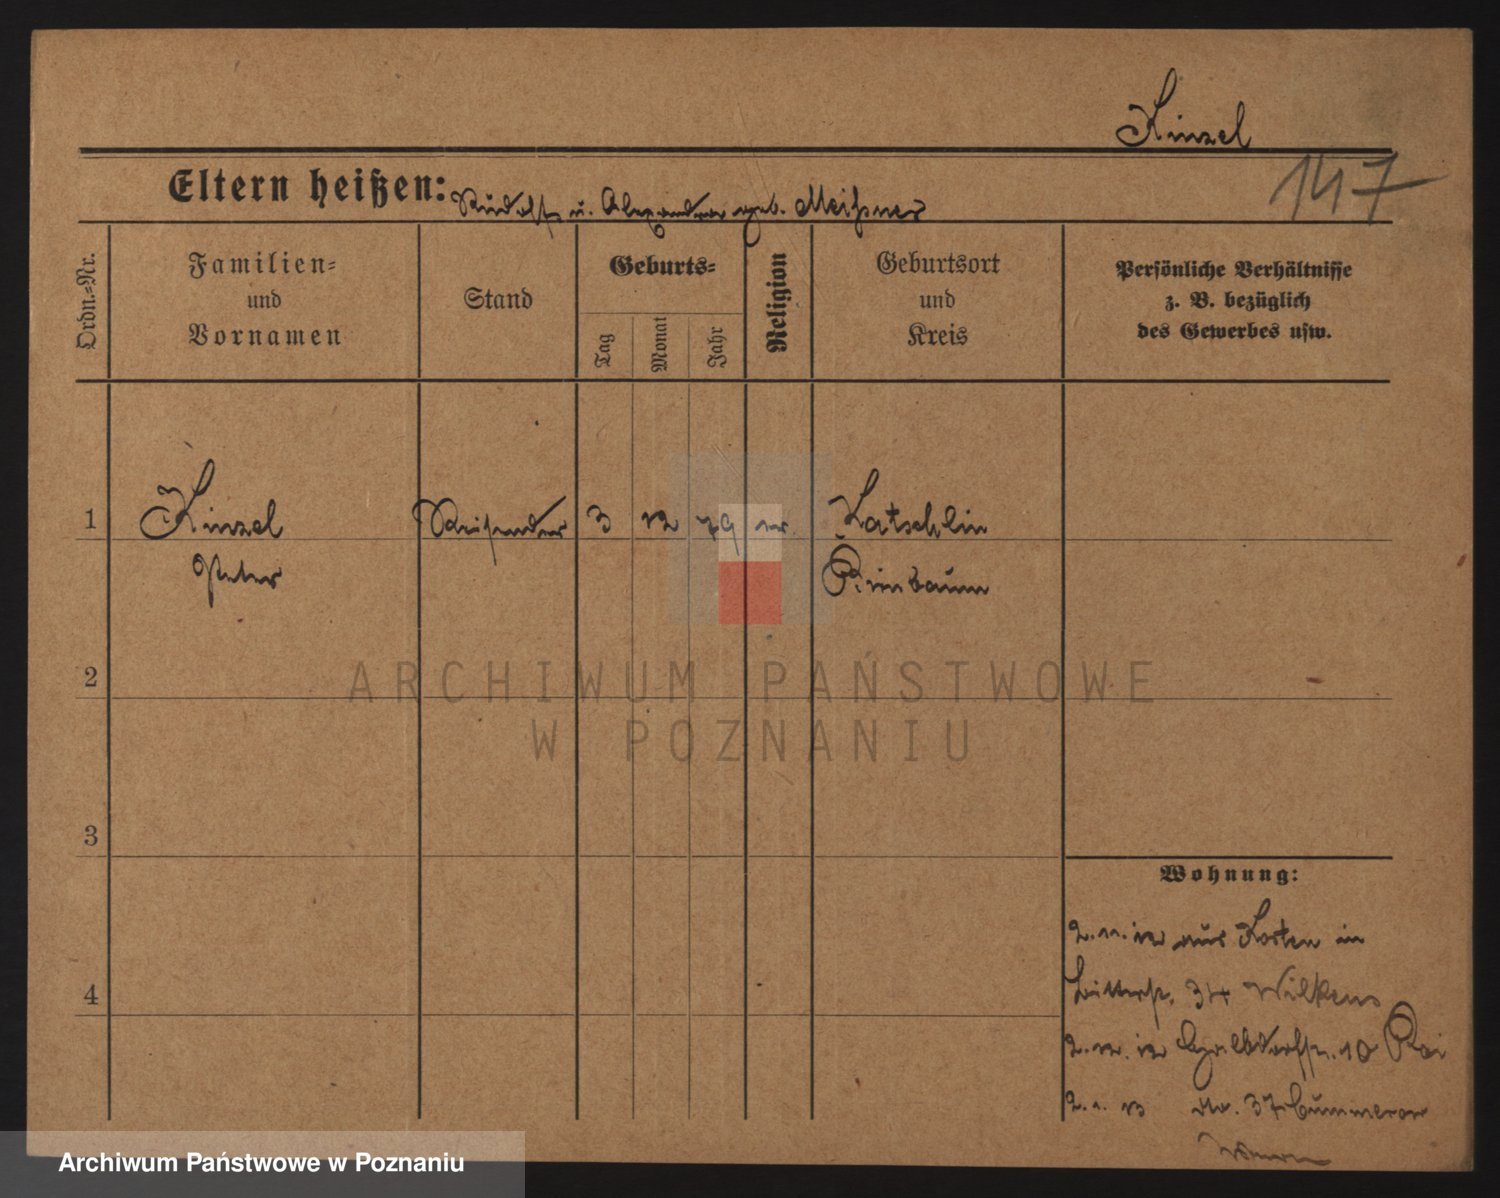 Kinzel
147
Eltern heißen: Rudolf u. Alexandra geb. Meißner
Ordn.-Nr.
Familien-
und
Vornamen
Stand
Geburts-
Tag
Monat
Jahr
Religion
Geburtsort
und
Kreis
Persönliche Verhältnisse
z. B. bezüglich
des Gewerbes usw.
1
Kinzel
Peter
Reisender
3
12
79
ev.
Katschlin
Birnbaum
2
3
4
Wohnung:
2.11.12 aus Kosten in
Ritterstr. 34 Wilkens
2.12.12
10
2.1.13
37
ARCHIWUM PAŃSTWOWE
W POZNANIU
Archiwum Państwowe w Poznaniu